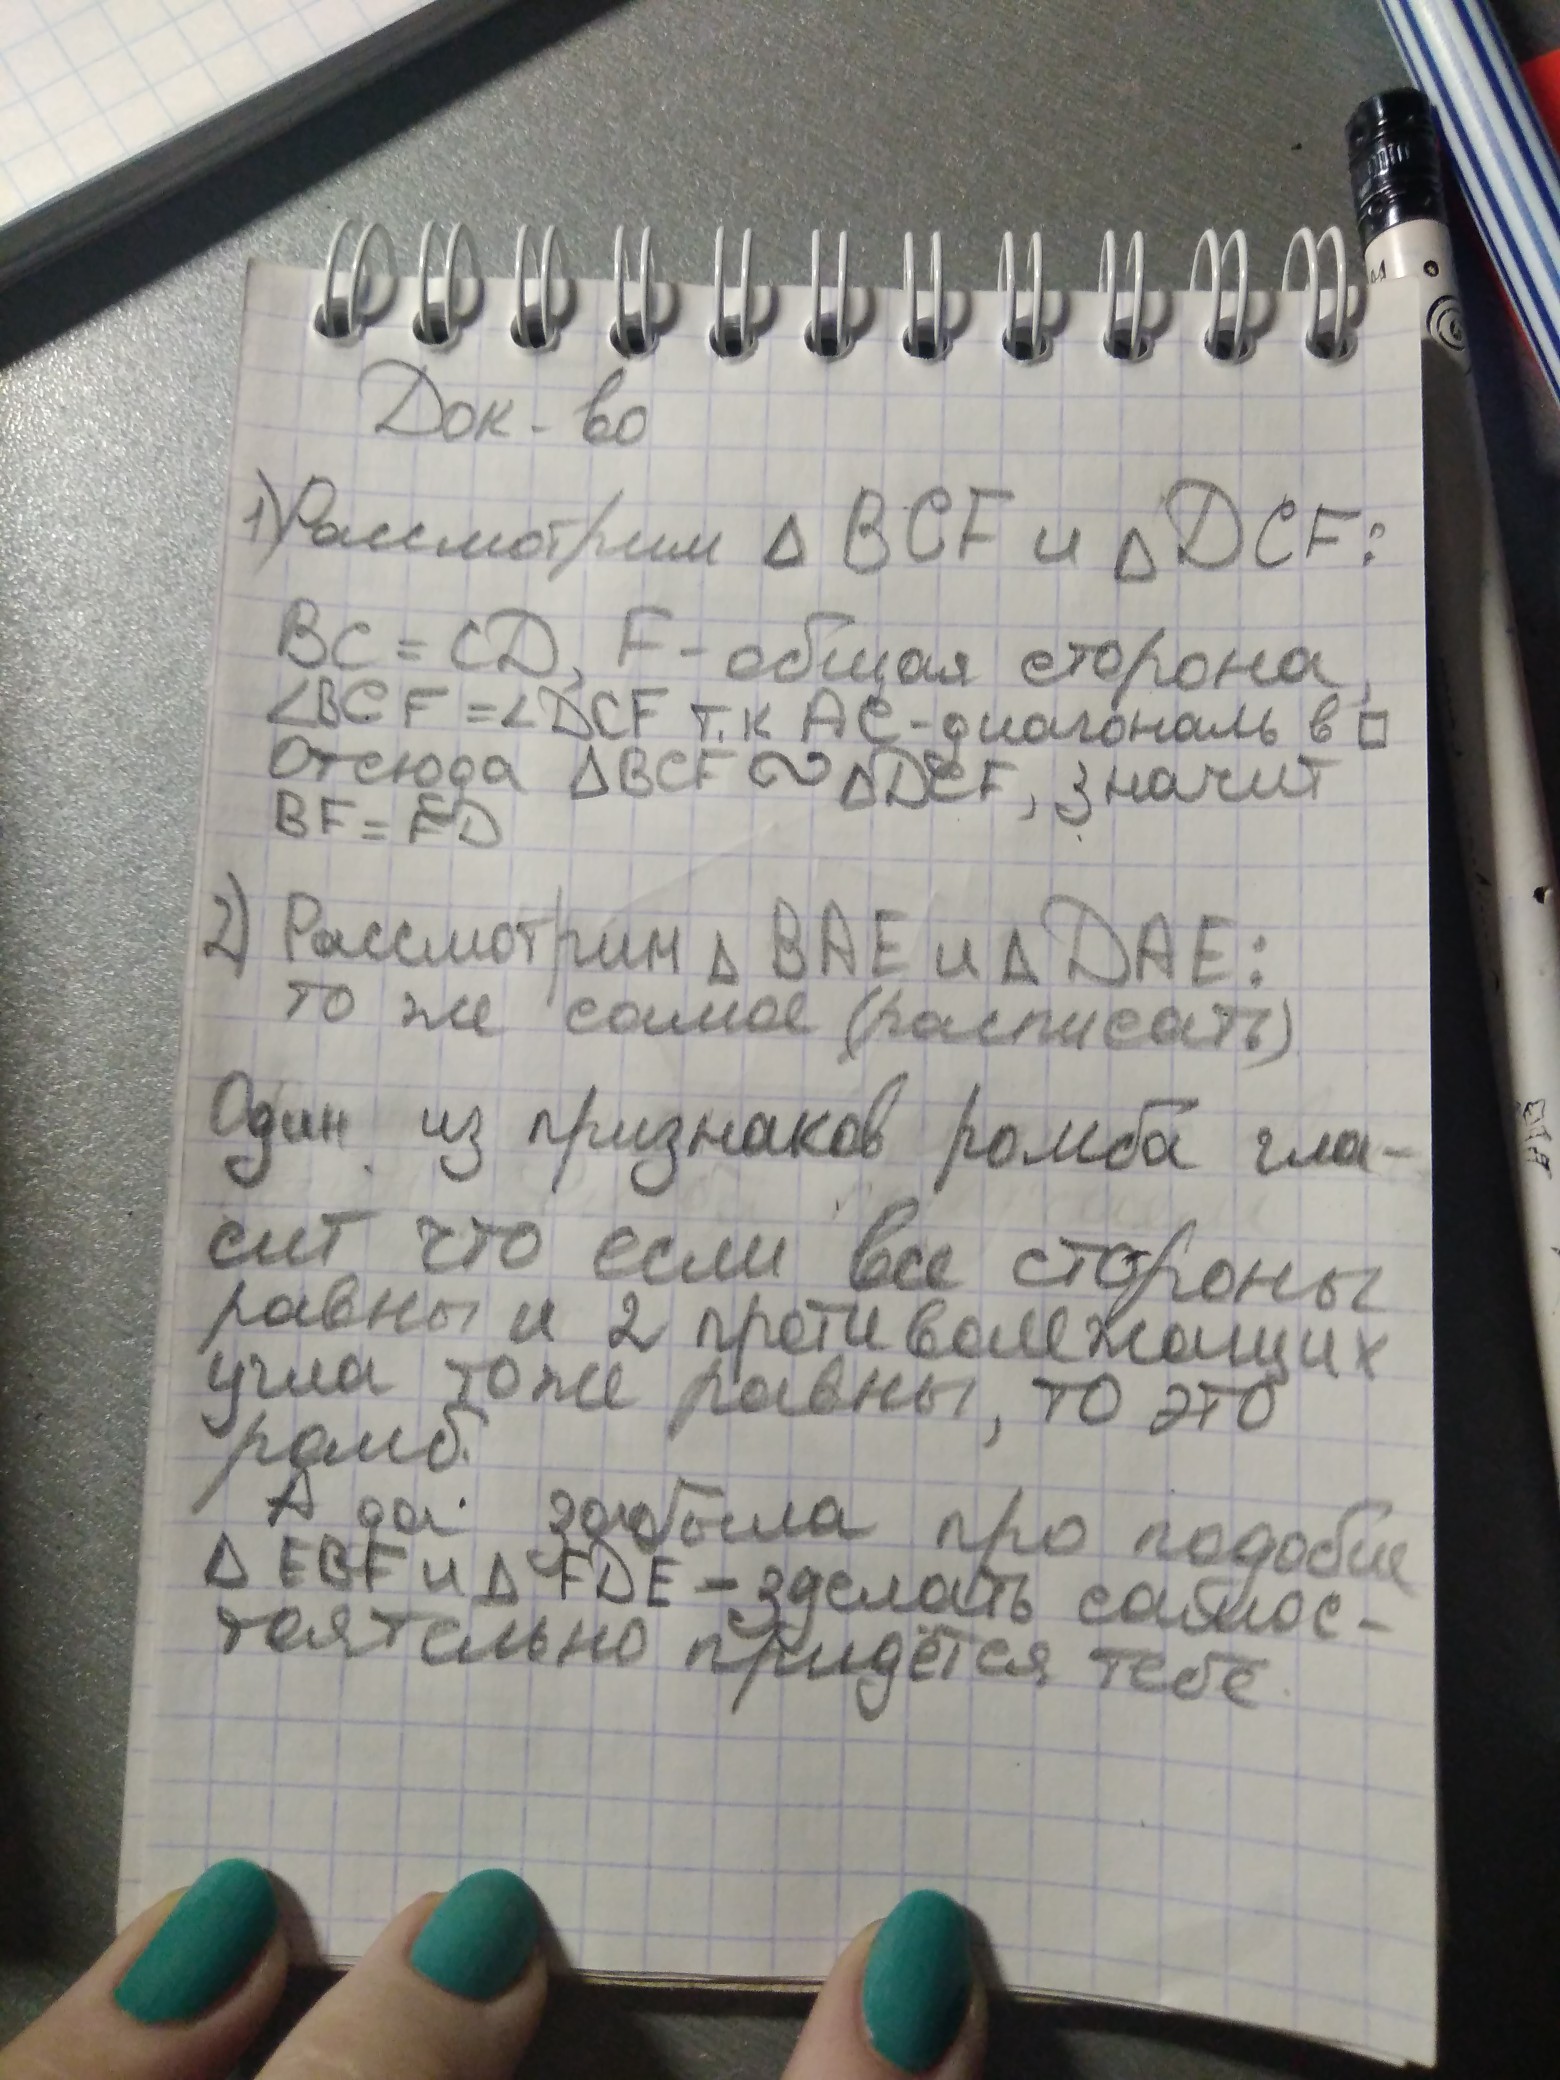 Док-во
1) Рассмотрим △ BCF и △DCF:
BC = CD, F - общая сторона,
∠BCF = ∠DCF т.к AC-диагональ в □
Отсюда △BCF ∾ △DCF, значит
BF = FD
2) Рассмотрим △ BAE и △ DAE:
то же самое (расписать)
Один из признаков ромба гла-
сит что если все стороны
равны и 2 противолежащих
угла тоже равны, то это
ромб.
А да: забыла про подобие
△ EBF и △ FDE - зделать самос-
тоятельно придётся тебе.